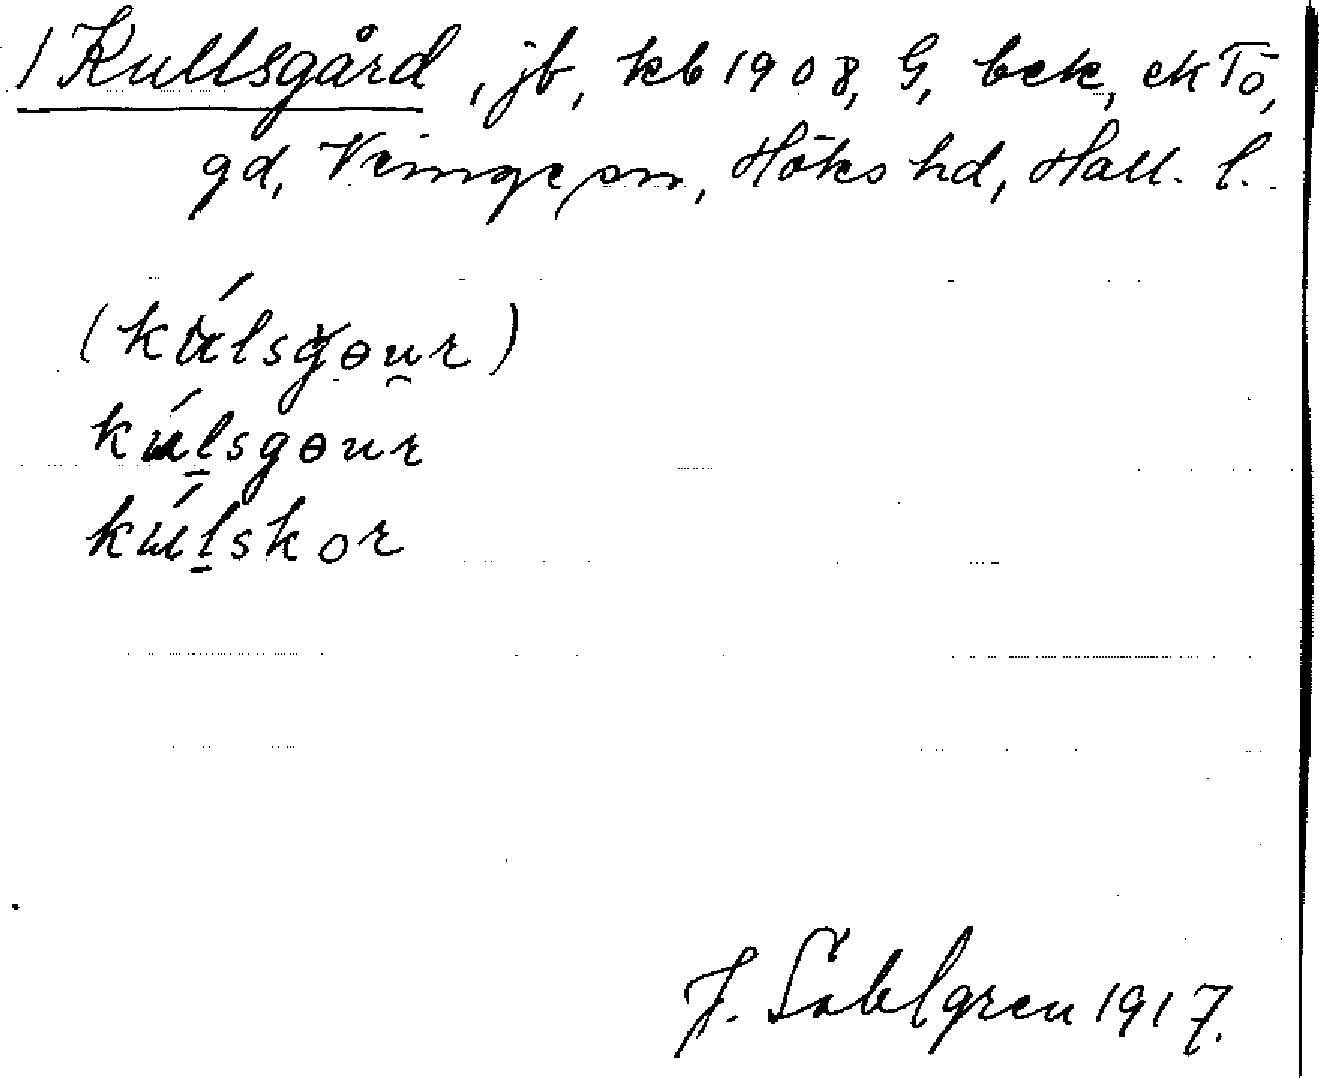 / Kullsgård, jb, kb 1908, G, bek, ekTö,
gd, Veinge sn, Höks hd, Hall. l.
(kúlsgɵu̯r)
kúl̠sgɵur
kúl̠skor
J. Sahlgren 1917.